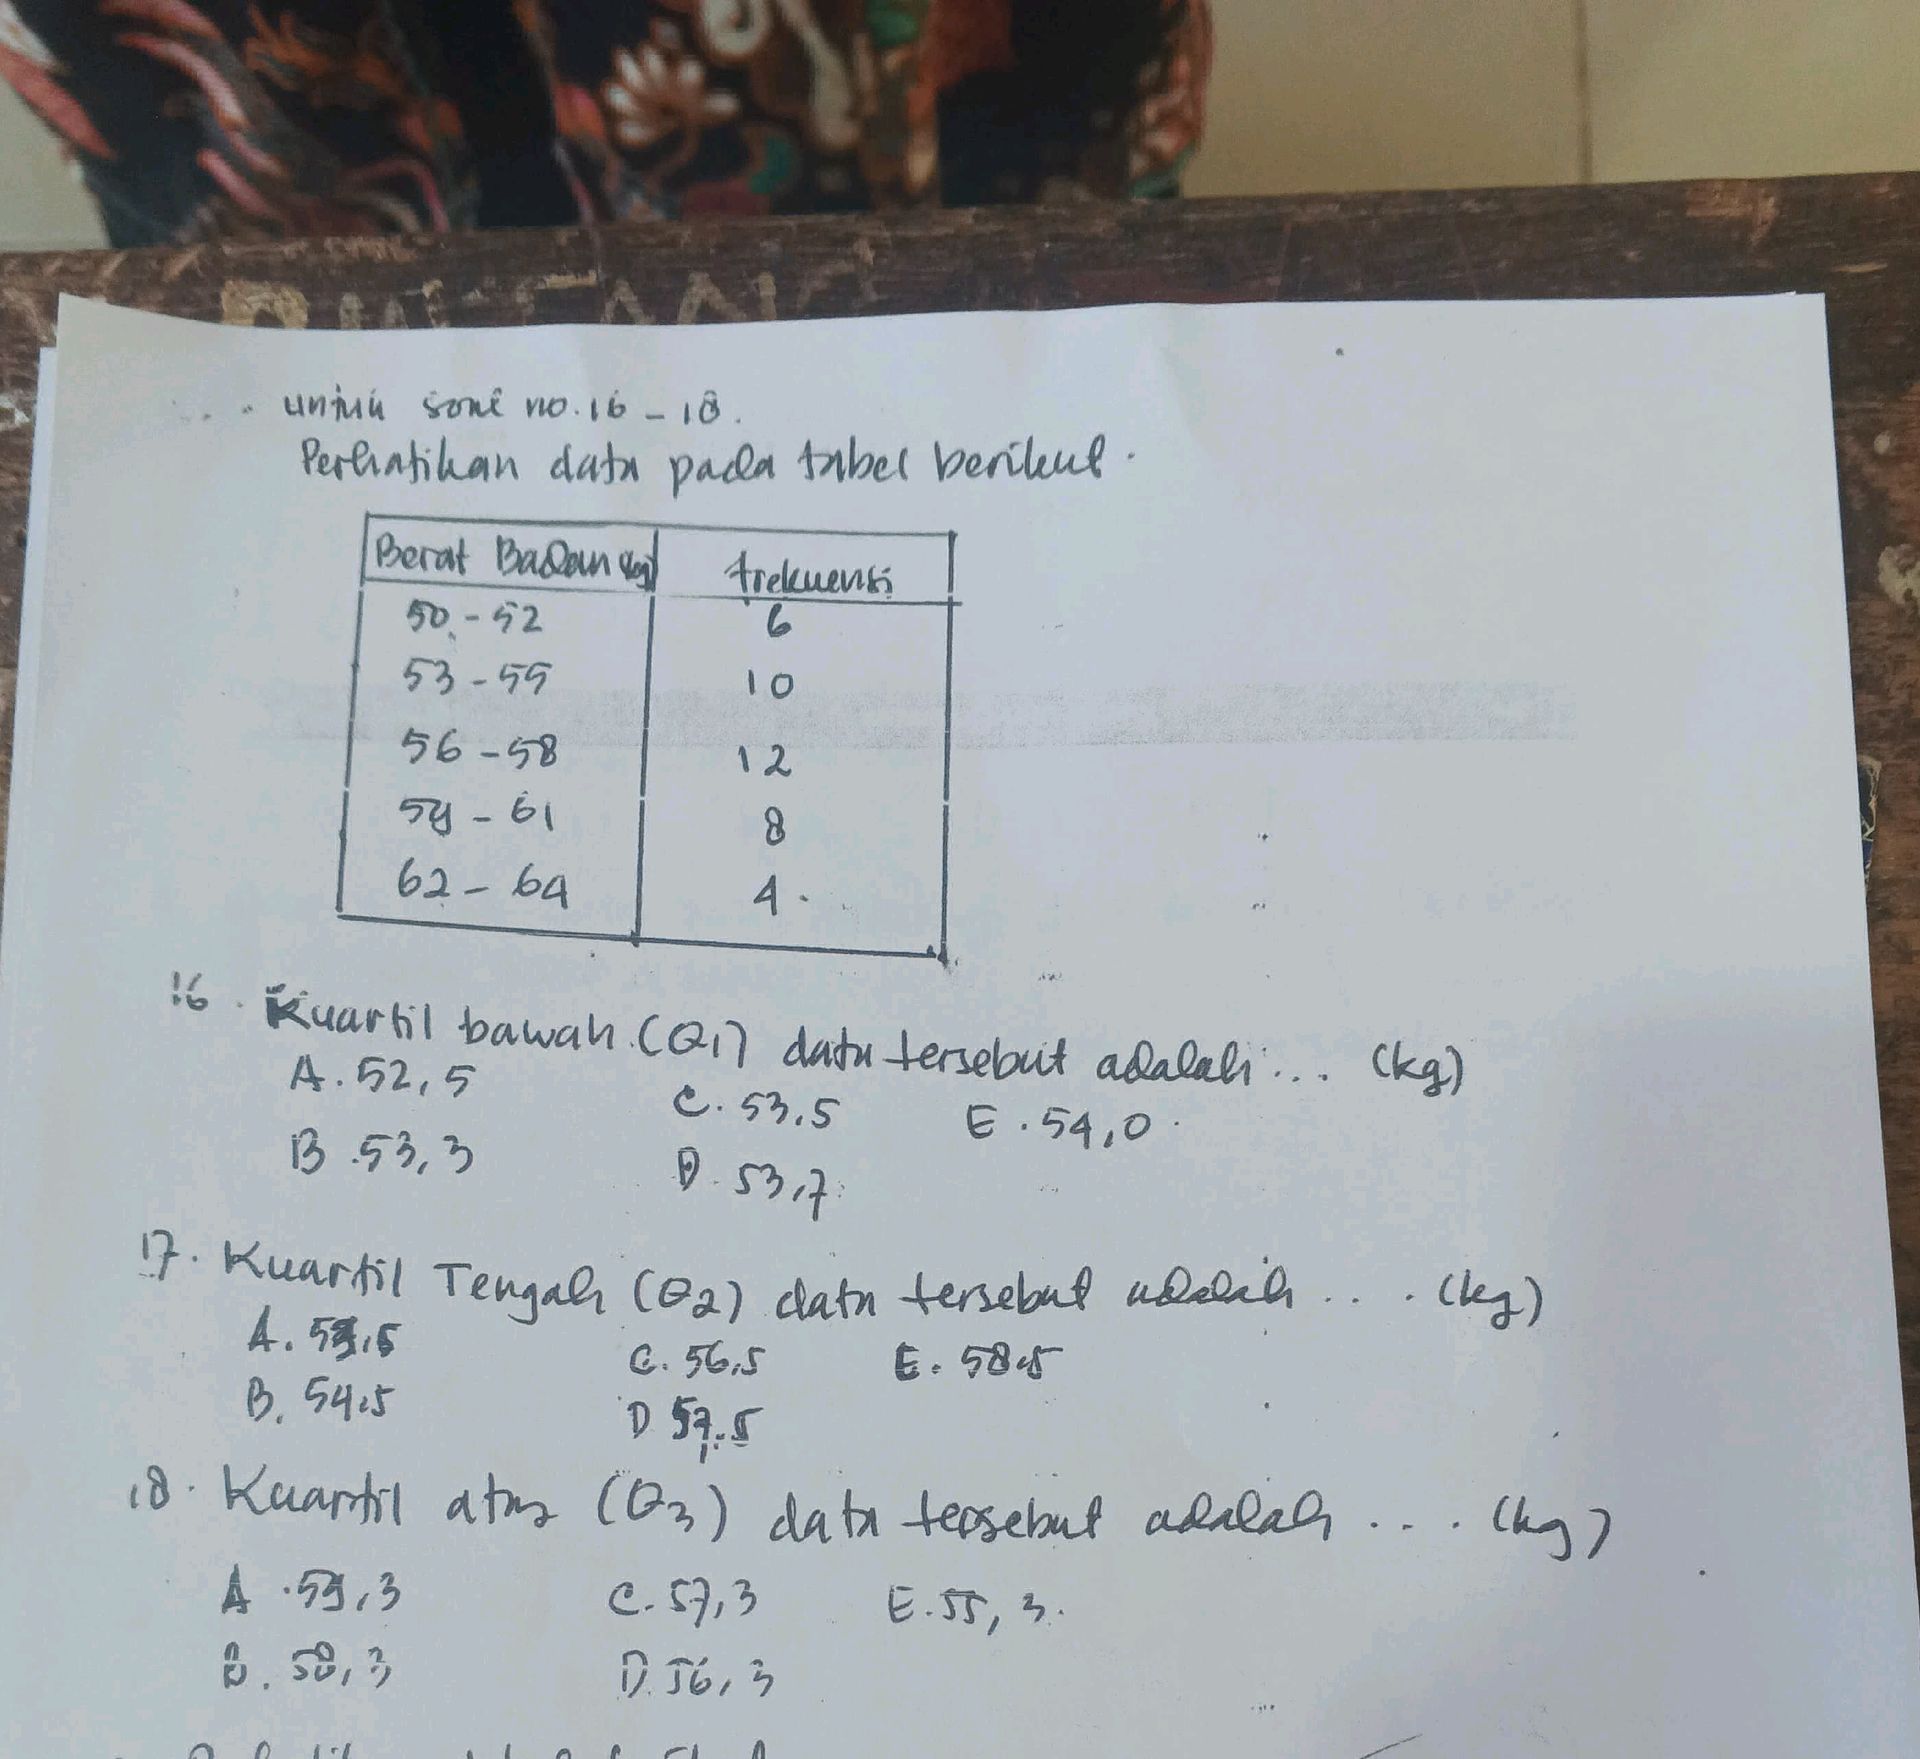 untuk soal no. 16 - 18.
Perhatikan data pada tabel berikut.
Berat Badan (kg) frekuensi
50 - 52 6
53 - 55 10
56 - 58 12
59 - 61 8
62 - 64 4
16. Kuartil bawah (Q1) data tersebut adalah ... (kg)
A. 52,5 C. 53,5 E. 54,0
B. 53,3 D. 53,7
17. Kuartil Tengah (Q2) data tersebut adalah ... (kg)
A. C. 56,5 E. 58,5
B. 54,5 D 57,5
18. Kuartil atas (Q3) data tersebut adalah .... (kg)
A. 59,3 C. 57,3 E. 55,3.
B. 58,3 D. 56,3